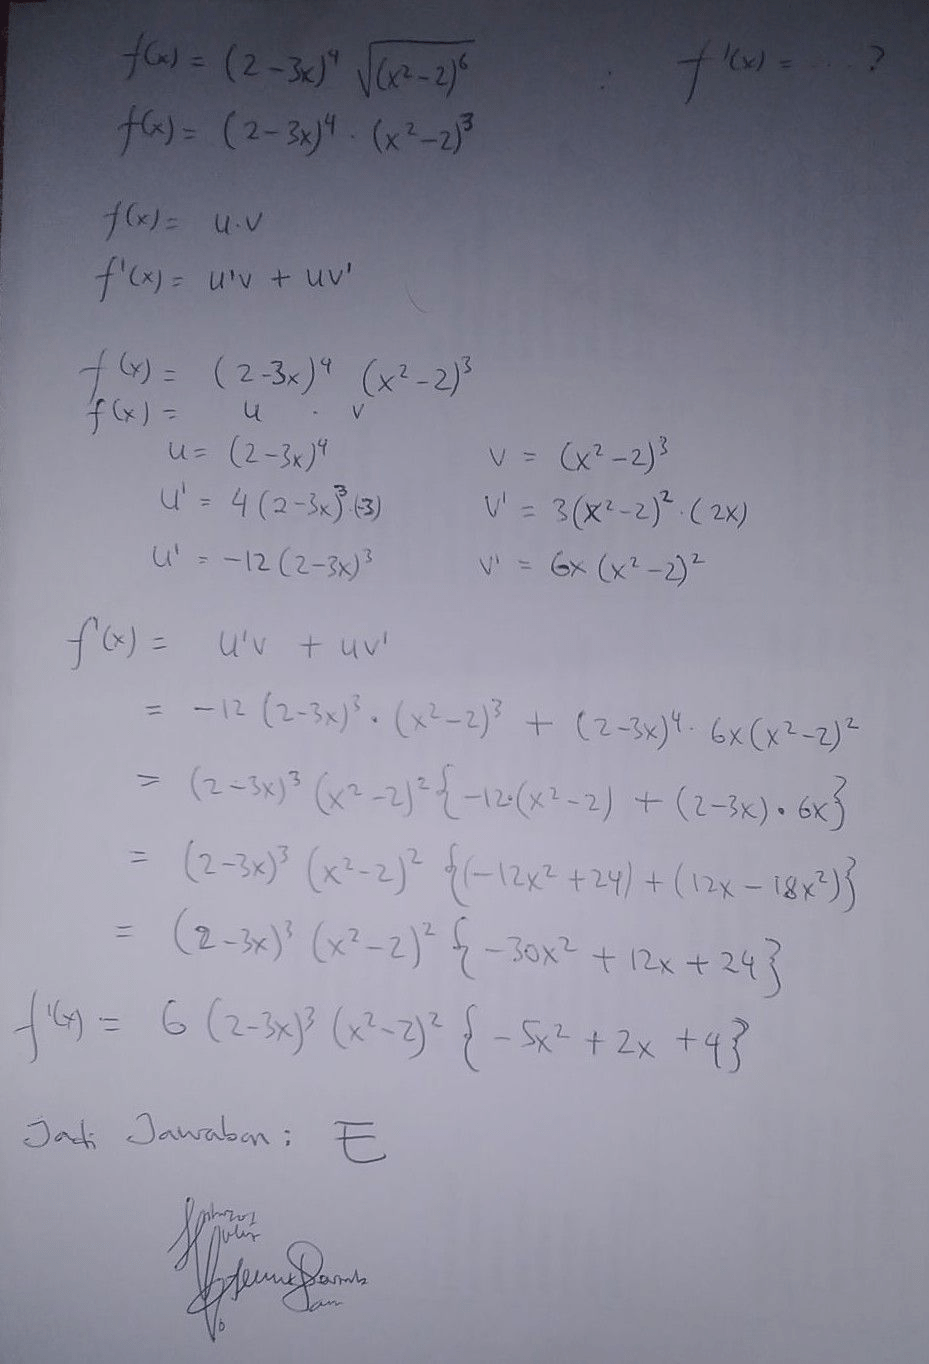 f(x) = (2-3x)⁴ √(x²-2)⁶ f'(x) = .... ?
f(x) = (2-3x)⁴ . (x²-2)³
f(x) = u.v
f'(x) = u'v + uv'
f(x) = (2-3x)⁴ (x²-2)³
f(x) = u . v
u = (2-3x)⁴ v = (x²-2)³
u' = 4(2-3x)³.(-3) v' = 3(x²-2)².(2x)
u' = -12(2-3x)³ v' = 6x(x²-2)²
f'(x) = u'v + uv'
= -12(2-3x)³.(x²-2)³ + (2-3x)⁴.6x(x²-2)²
= (2-3x)³(x²-2)²{-12.(x²-2) + (2-3x).6x}
= (2-3x)³ (x²-2)² {(-12x²+24) + (12x-18x²)}
= (2-3x)³ (x²-2)² {-30x² + 12x + 24}
f'(x) = 6 (2-3x)³ (x²-2)² {-5x² + 2x + 4}
Jadi Jawaban : E